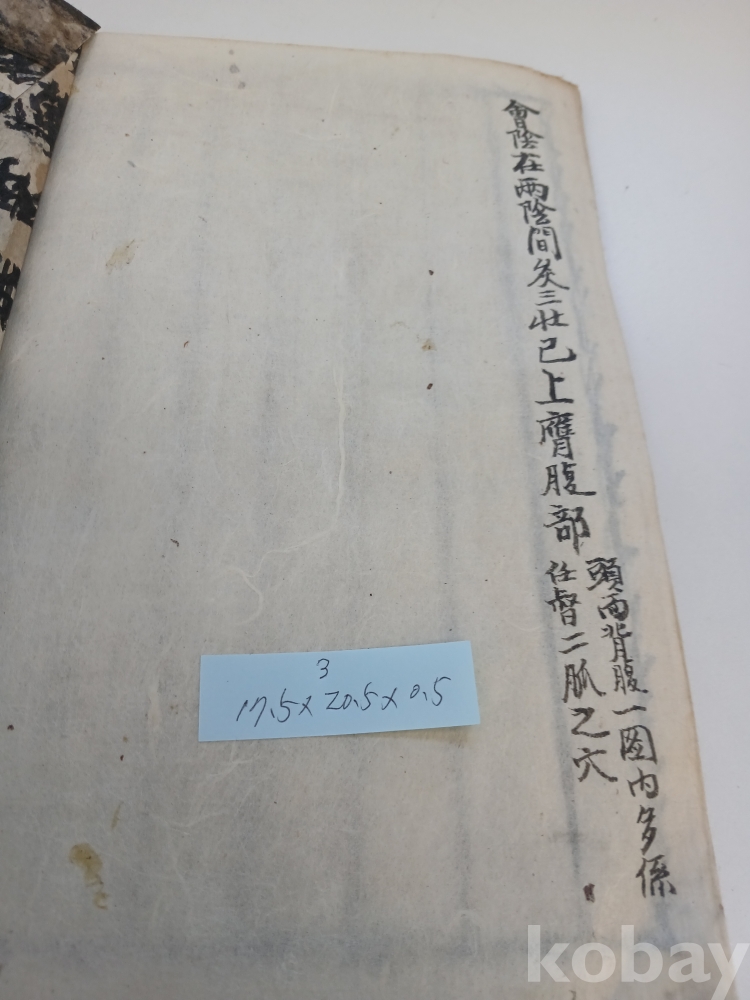 會陰在兩陰間灸三壯已上膺腹部
頭面背腹一圈內多係
任督二脈之穴
3
17.5x 20.5x 0.5
kobay